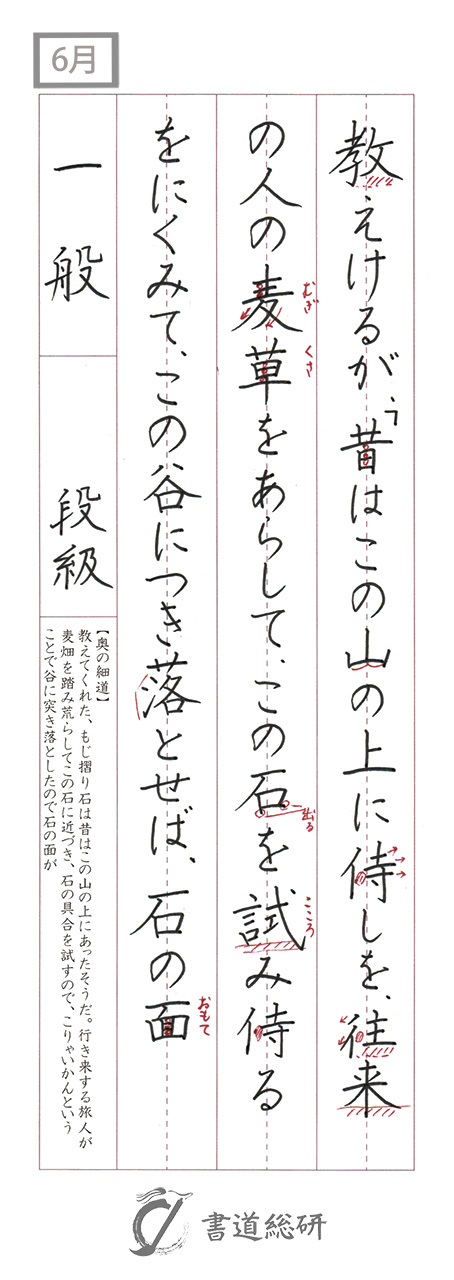 6月
教えけるが、昔はこの山の上に侍しを、往来
う
出る
の人の麦草をあらして、この石を試み侍る
むぎ
くさ
こころ
をにくみて、この谷につき落とせば、石の面
おもて
一般
段級
【奥の細道】
教えてくれた、もじ摺り石は昔はこの山の上にあったそうだ。行き来する旅人が
麦畑を踏み荒らしてこの石に近づき、石の具合を試すので、こりゃいかんという
ことで谷に突き落としたので石の面が
書道総研